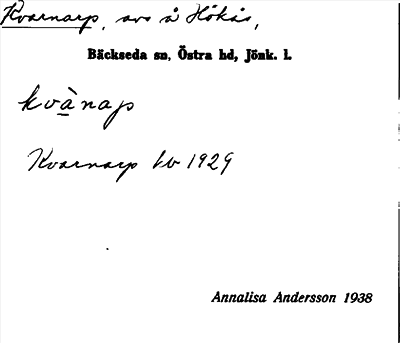 Kvarnarp, avs å Hökås,
Bäckseda sn, Östra hd, Jönk. l.
kvànap
Kvarnarp kv 1929
Annalisa Andersson 1938